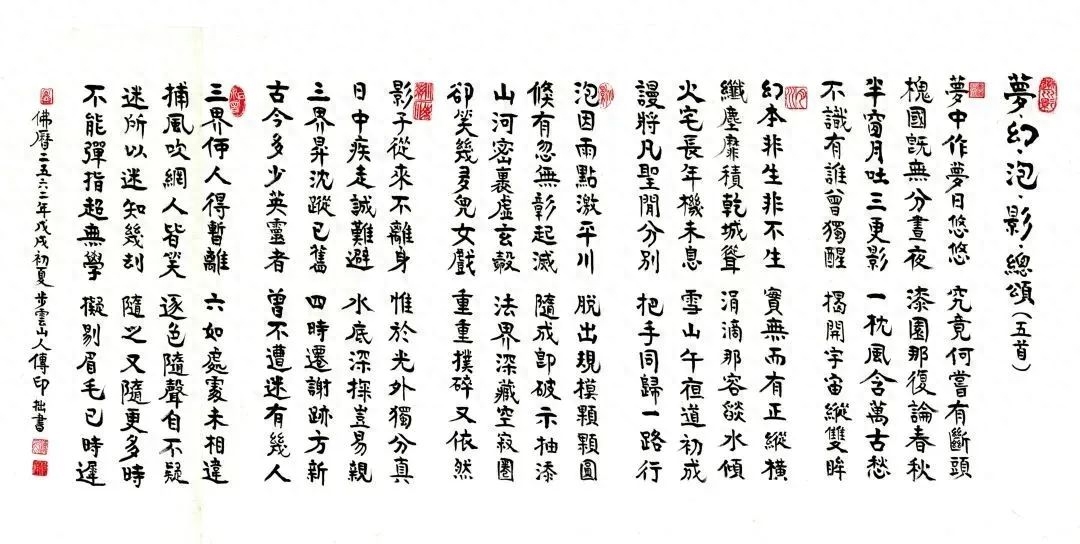 夢·幻·泡·影·總頌(五首)
夢中作夢日悠悠 究竟何嘗有斷頭
槐國既無分晝夜 漆園那復論春秋
半窗月吐三更影 一枕風含萬古愁
不識有誰曾獨醒 揭開宇宙縱雙眸
幻本非生非不生 實無而有正縱橫
纖塵靡積乾城聳 涓滴那容燄水傾
火宅長年機未息 雪山午亱道初成
謾將凡聖閒分別 把手同歸一路行
泡因雨點激平川 脫出規模顆顆圓
倏有忽無彰起滅 隨成即破示抽添
山河密裏虛玄殼 法界深藏空寂圈
卻笑幾多兒女戲 重重撲碎又依然
影子從來不離身 惟於光外獨分真
日中疾走誠難避 水底深探豈易親
三界昇沈蹤已舊 四時遷謝跡方新
古今多少英靈者 曾不遭迷有幾人
三界何人得暫離 六如處處未相違
捕風吹網人皆笑 逐色隨聲自不疑
迷所以迷知幾刦 隨之又隨更多時
不能彈指超無學 擬剔眉毛已時遲
佛曆二五六二年戊戌初夏步雲山人傳印拙書